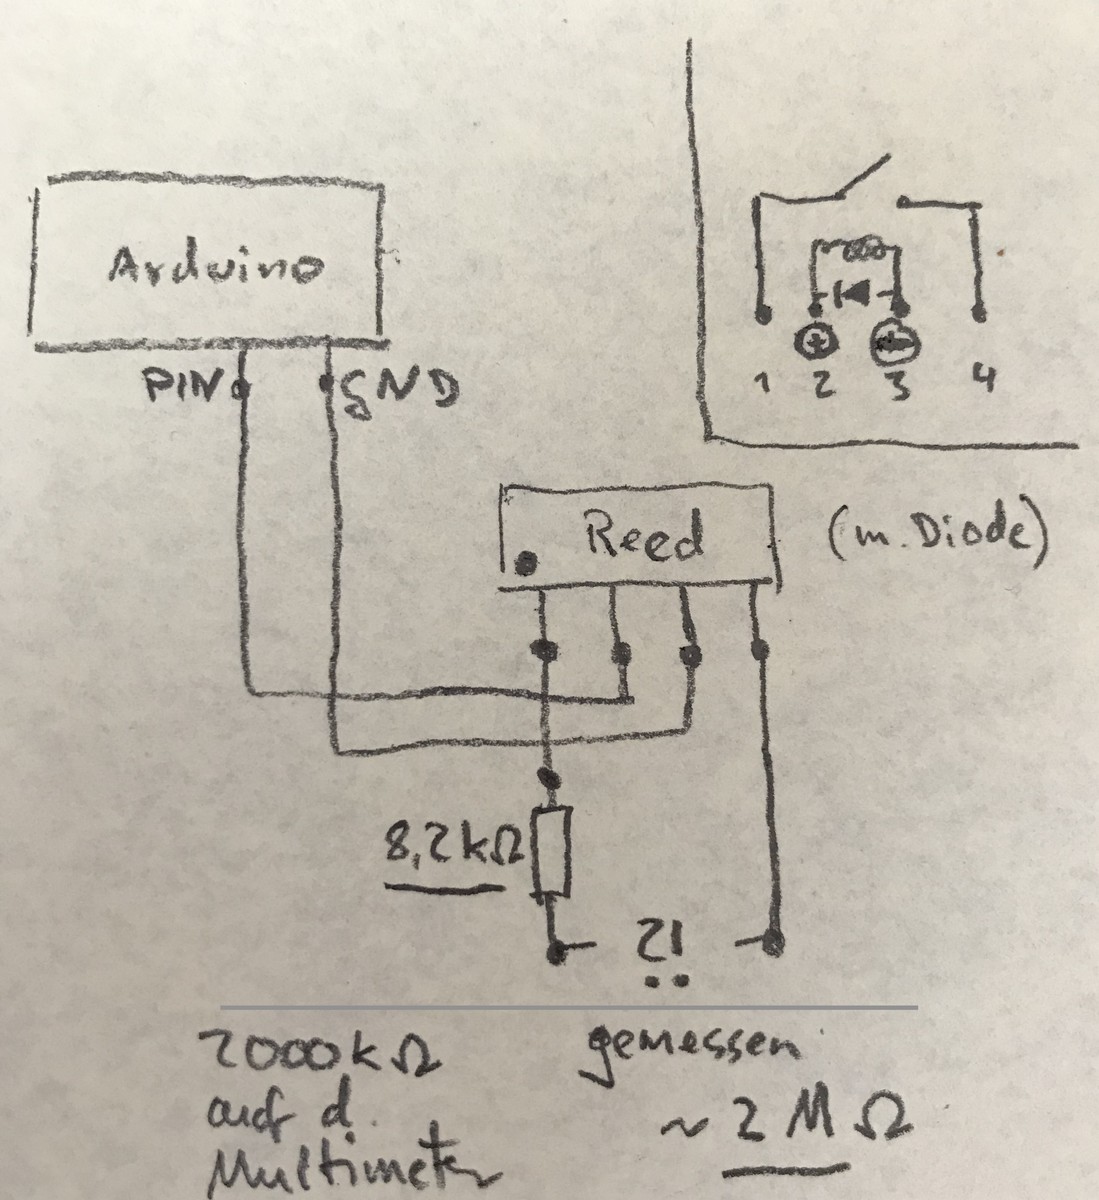 Arduino
PIN
GND
⊕ ⊖
1 2 3 4
Reed
(m. Diode)
8,2kΩ
?!
2000kΩ
auf d.
Multimeter
gemessen
~ 2 MΩ